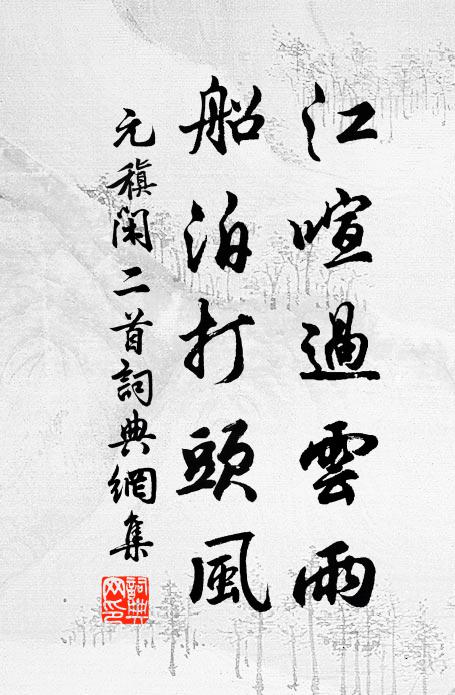 江喧過雲雨
船泊打頭風
元稹閑二首詞典網集
詞典